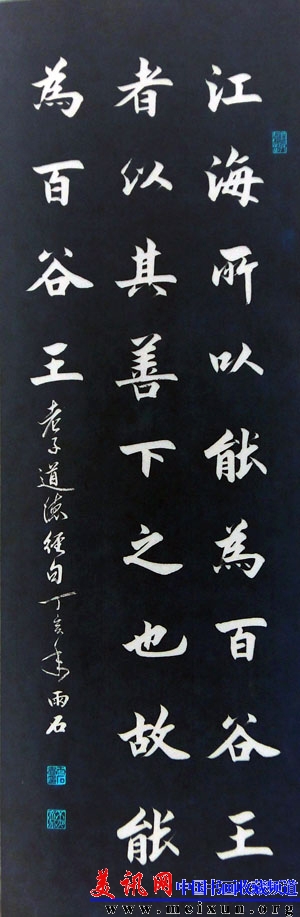 江海所以能為百谷王
者以其善下之也故能
為百谷王
老子道德經句丁亥年雨石
美讯网 中国书画收藏频道
www.meixun.org